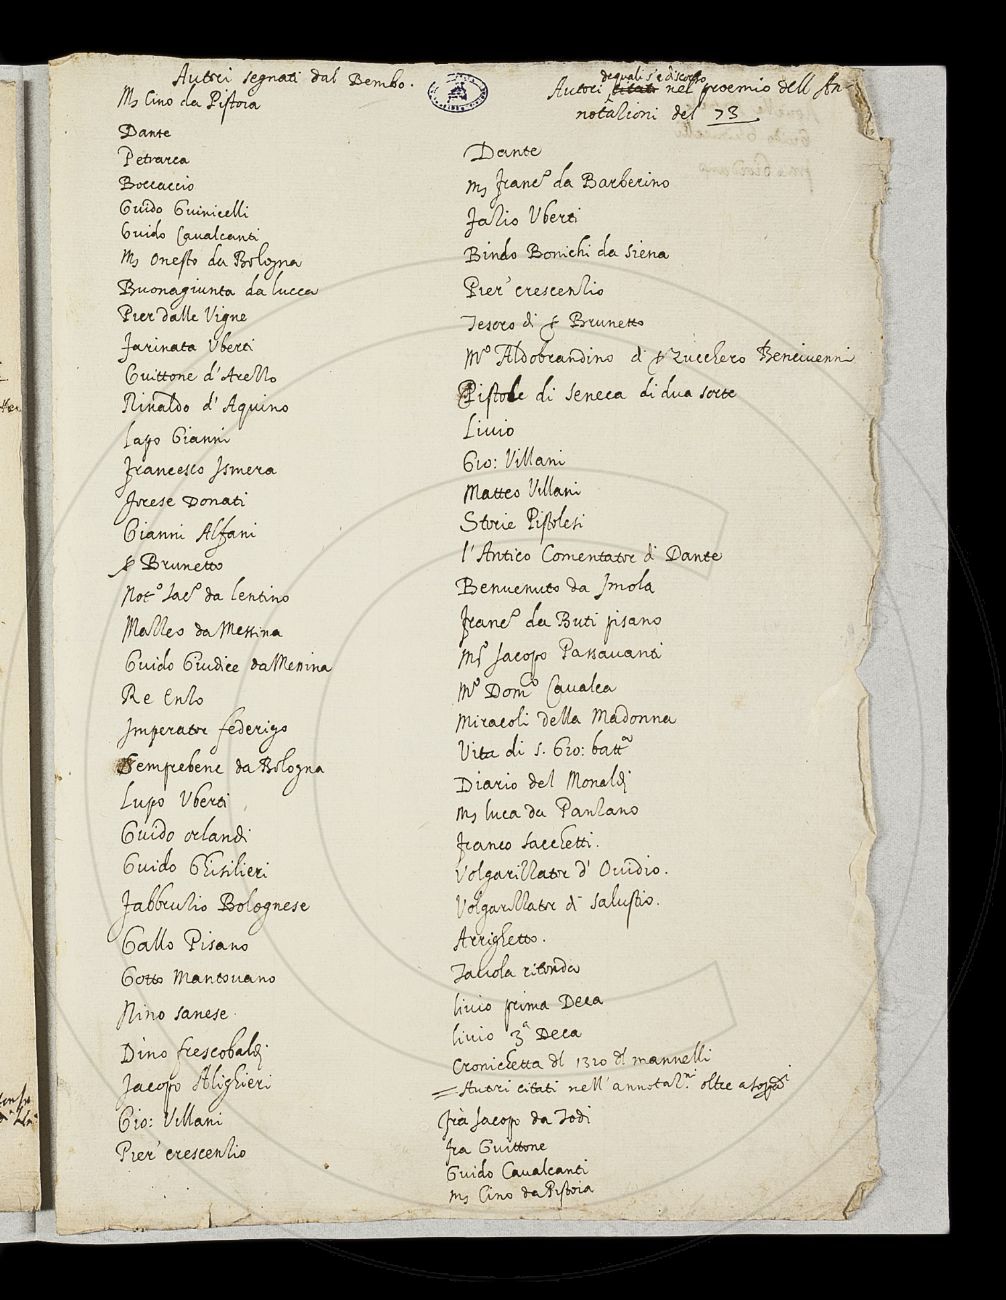 Autori segnati dal Bembo.
Ms Cino da Pistoia
Dante
Petrarca
Boccaccio
Guido Guinicelli
Guido Cavalcanti
Ms Onesto da Bologna
Buonagiunta da lucca
Pier dalle Vigne
Farinata Uberti
Guittone d'Arezzo
Rinaldo d'Aquino
Lapo Gianni
Francesco Ismera
Forese Donati
Gianni Alfani
s Brunetto
Notº Jacº da lentino
Mazzeo da Messina
Guido Giudice da Messina
Re Enzo
Imperator federigo
Semprebene da Bologna
Lupo Uberti
Guido orlandi
Guido Ghisilieri
Fabbruzio Bolognese
Gallo Pisano
Gotto Mantovano
Nino sanese.
Dino frescobaldi
Jacopo Alighieri
Gio: Villani
Pier' crescenzio
de quali s'è discorso
Autori citati nel proemio dell An-
notazioni del 73
Dante
Ms Francº da Barberino
Fazio Uberti
Bindo Bonichi da Siena
Pier' crescenzio
Tesoro di s Brunetto
Mº Aldobrandino di s Zucchero Bencivenni
Pistole di Seneca di dua sorte
Livio
Gio: Villani
Matteo Villani
Storie Pistolesi
l'Antico Comentator di Dante
Benvenuto da Imola
Francº da Buti pisano
Mº Jacopo Passavanti
Mº Domº Cavalca
Miracoli della Madonna
Vita di S. Gio: batta
Diario del Monaldi
Ms luca da Panzano
Franco Sacchetti.
Volgarizzator d'Ovidio.
Volgarizzator di Salustio.
Arrighetto.
Tavola ritonda
livio prima Deca
livio 3ª Deca
Cronichetta dl 1320 dl mannelli
= Autri citati nell'annotazni oltre a sopradi
fra Jacop da Todi
fra Guittone
Guido Cavalcanti
Ms Cino da Pistoia